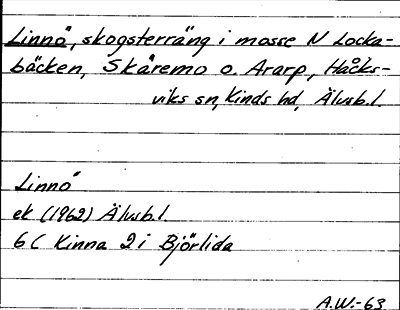 Linnö, skogsterräng i mosse N Locka-
bäcken, Skåremo o. Ararp, Håcks-
viks sn, Kinds hd, Älvsb.l.
Linnö
ek (1962) Älvsb.l.
6 C Kinna 2 i Björlida
A.W.-63